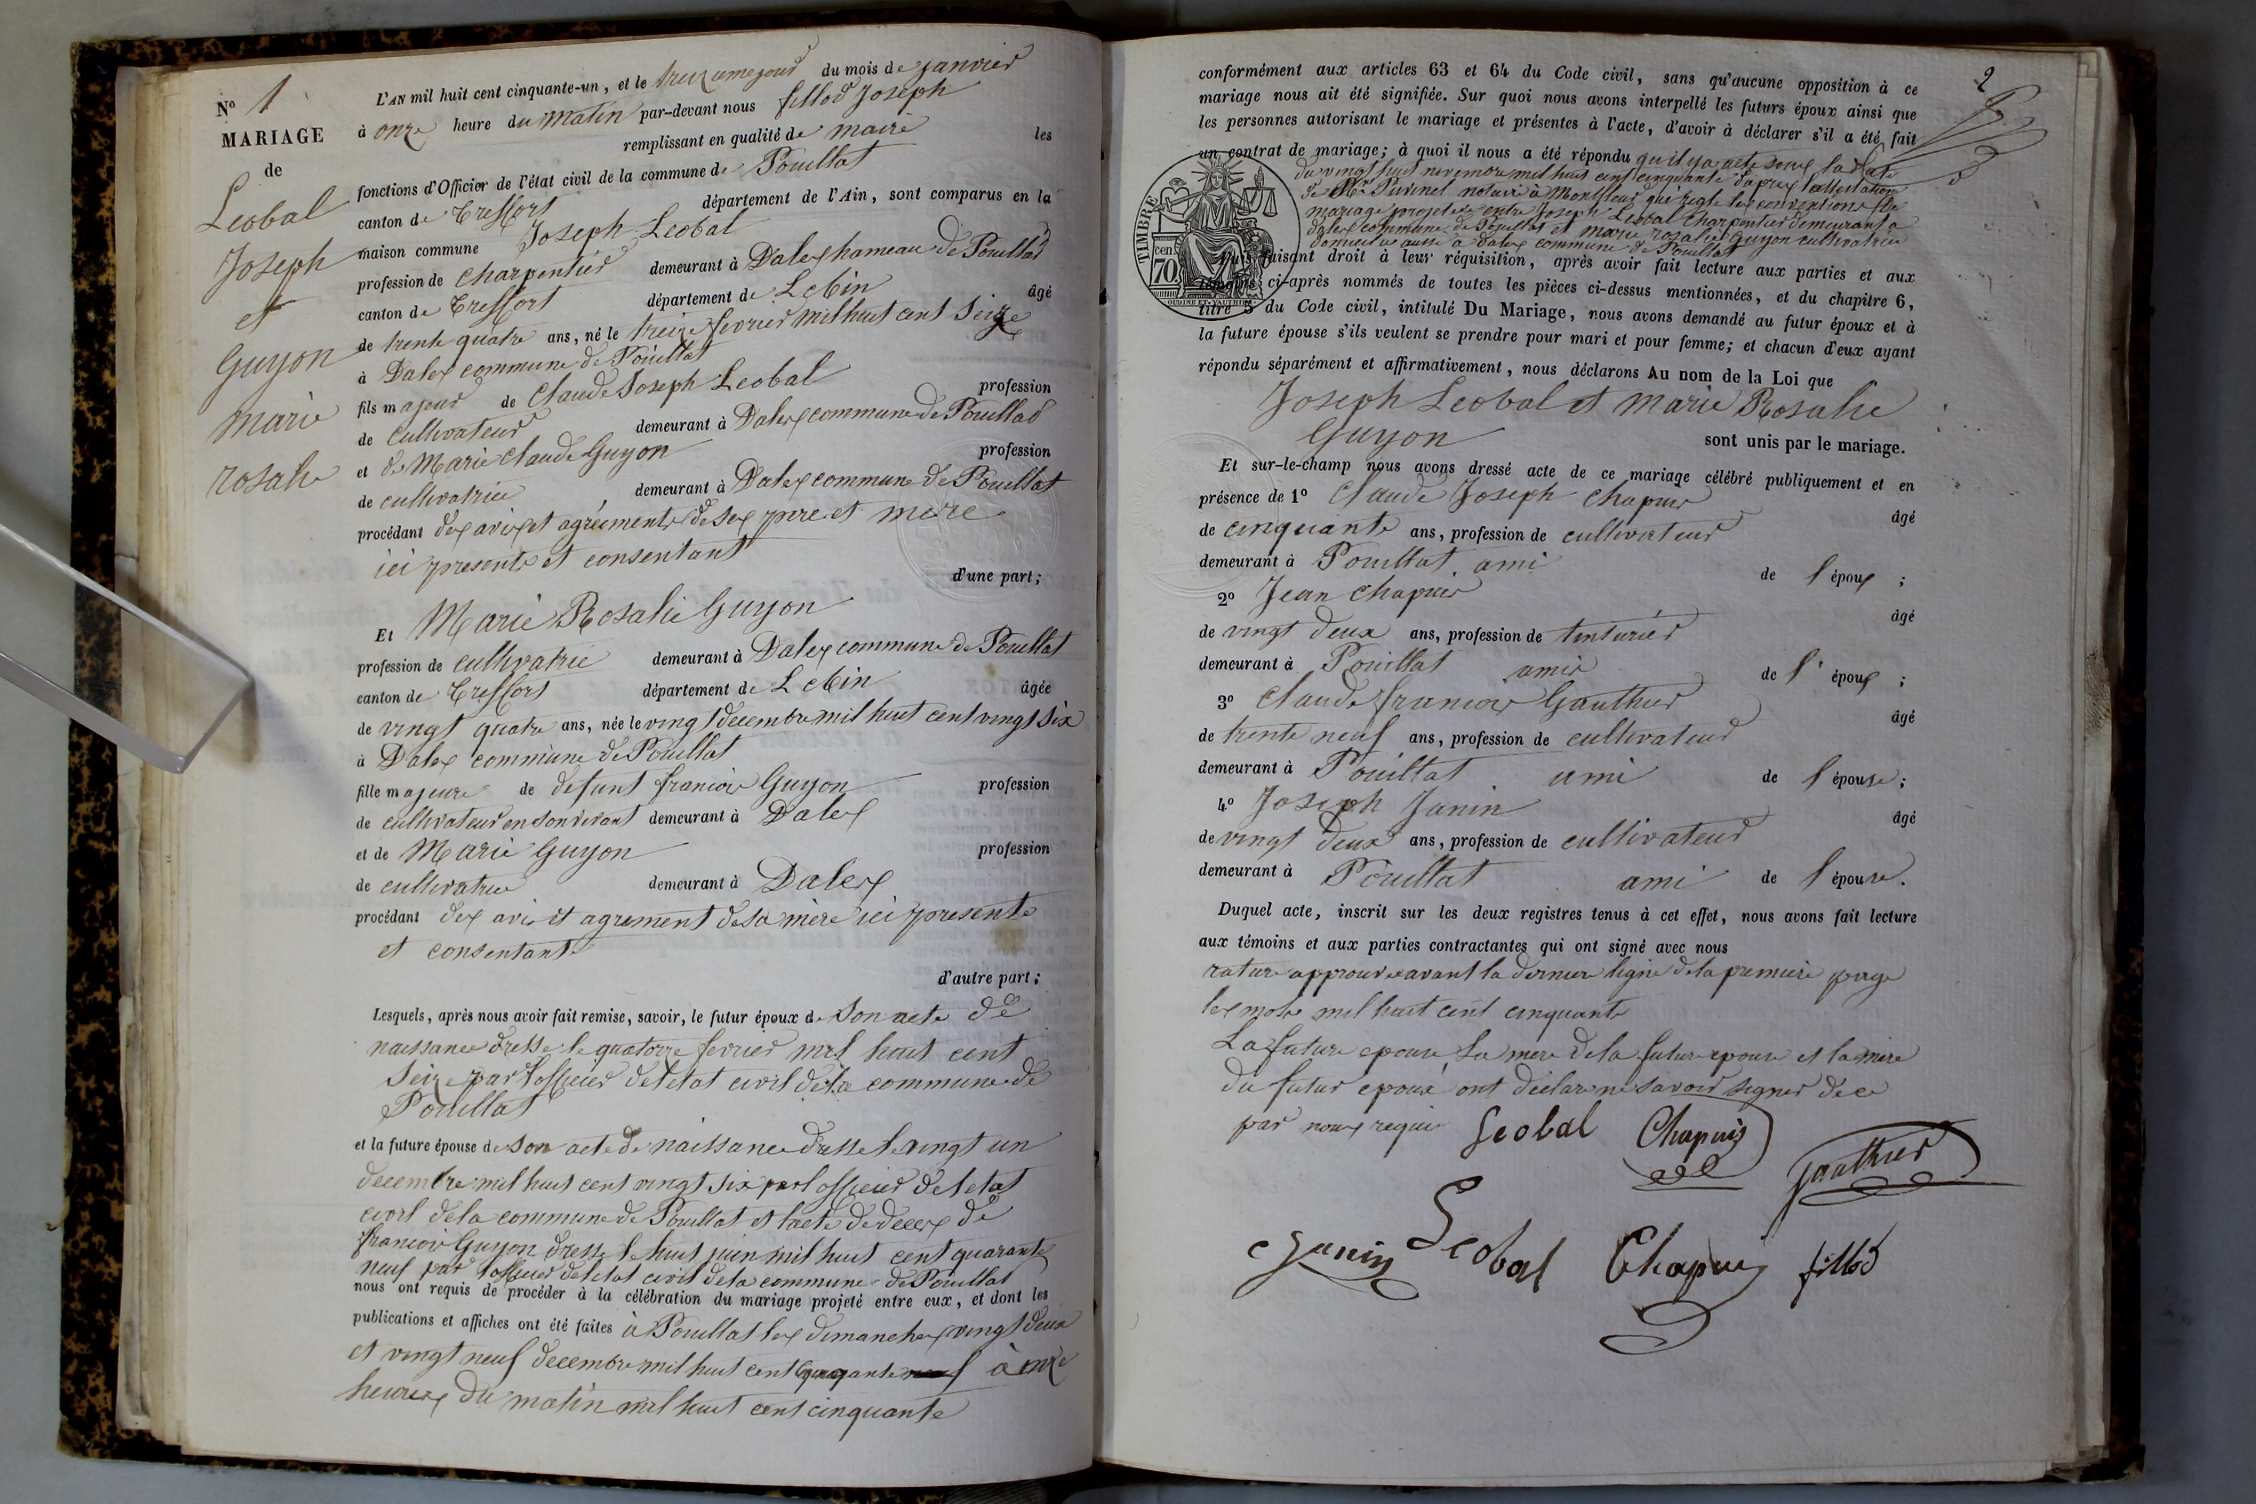 N° 1
MARIAGE
de
Leobal
Joseph
et
Guyon
marie
rosalie
L'AN mil huit cent cinquante-un, et le treiziemejour du mois de janvier
à onze heure du matin par-devant nous fillod Joseph
remplissant en qualité de maire les
fonctions d'Officier de l'état civil de la commune de Pouillat
canton de Treffort département de l'Ain, sont comparus en la
maison commune Joseph Leobal
profession de charpentier demeurant à Dalex hameau de Pouillat
canton de Treffort département de L'Ain âgé
de trente quatre ans, né le treize fevrier mil huit cent Seize
à Dalex commune de Pouillat
fils majeur de Claude Joseph Leobal profession
de cultivateur demeurant à Dalex commune de Pouillat
et de Marie Claude Guyon profession
de cultivatrice demeurant à Dalex commune de Pouillat
procédant des avis et agréments de ses pere et mere
ici presents et consentant
d'une part;
Et Marie Rosalie Guyon
profession de cultivatrice demeurant à Dalex commune de Pouillat
canton de Treffort département de L'Ain âgée
de vingt quatre ans, née le vingt decembre mil huit cent vingt six
à Dalex commune de Pouillat
fille majeure de defunt francois Guyon profession
de cultivateur en son vivant demeurant à Dalex
et de Marie Guyon profession
de cultivatrice demeurant à Dalex
procédant des avis et agrement de sa mère ici presente
et consentante
d'autre part;
Lesquels, après nous avoir fait remise, savoir, le futur époux de son acte de
naissance dressé le quatorze fevrier mil huit cent
Seize par l'officier de l'etat civil de la commune de
Pouillat
et la future épouse de son acte de naissance dressé le vingt un
decembre mil huit cent vingt six par l'officier de l'etat
civil de la commune de Pouillat et l'acte de deces de
francois Guyon dressé le huit juin mil huit cent quarante
neuf par l'officier de l'etat civil de la commune de Pouillat
nous ont requis de procéder à la célébration du mariage projeté entre eux, et dont les
publications et affiches ont été faites à Pouillat les dimanches vingt deux
et vingt neuf decembre mil huit cent à onze
heures du matin mil huit cent cinquante
2
conformément aux articles 63 et 64 du Code civil, sans qu'aucune opposition à ce
mariage nous ait été signifiée. Sur quoi nous avons interpellé les futurs époux ainsi que
les personnes autorisant le mariage et présentes à l'acte, d'avoir à déclarer s'il a été fait
un contrat de mariage; à quoi il nous a été répondu qu'il y a acte sous la date
du vingt huit novembre mil huit cent cinquante d'apres l'attestation
de Mr notaire à Montfleur qui regle les conventions de
mariage projeté entre Joseph Leobal charpentier demeurant a
Dalex commune de Pouillat et marie rosalie Guyon cultivatrice
domiciliée aussi a Dalex commune de Pouillat
TIMBRE
cen 70
faisant droit à leur réquisition, après avoir fait lecture aux parties et aux
témoins ci-après nommés de toutes les pièces ci-dessus mentionnées, et du chapitre 6,
titre 5 du Code civil, intitulé Du Mariage, nous avons demandé au futur époux et à
la future épouse s'ils veulent se prendre pour mari et pour femme; et chacun d'eux ayant
répondu séparément et affirmativement, nous déclarons Au nom de la Loi que
Joseph Leobal et Marie Rosalie
Guyon sont unis par le mariage.
Et sur-le-champ nous avons dressé acte de ce mariage célébré publiquement et en
présence de 1° Claude Joseph Chapuis âgé
de cinquante ans, profession de cultivateur
demeurant à Pouillat ami de l'époux;
2° Jean Chapuis âgé
de vingt deux ans, profession de tinturier
demeurant à Pouillat amis de l'époux;
3° Claude francois Gauthier âgé
de trente neuf ans, profession de cultivateur
demeurant à Pouillat ami de l'épouse;
4° Joseph Janin âgé
de vingt deux ans, profession de cultivateur
demeurant à Pouillat ami de l'épouse.
Duquel acte, inscrit sur les deux registres tenus à cet effet, nous avons fait lecture
aux témoins et aux parties contractantes qui ont signé avec nous
rature approuvée avant la derniere ligne de la premiere page
les mots mil huit cent cinquante
La future epouse la mere de la future epouse et la mere
du futur epoux ont déclaré ne savoir signer de ce
par nous requis Leobal Chapuis
Gauthier
Janin Leobal Chapuis fillod